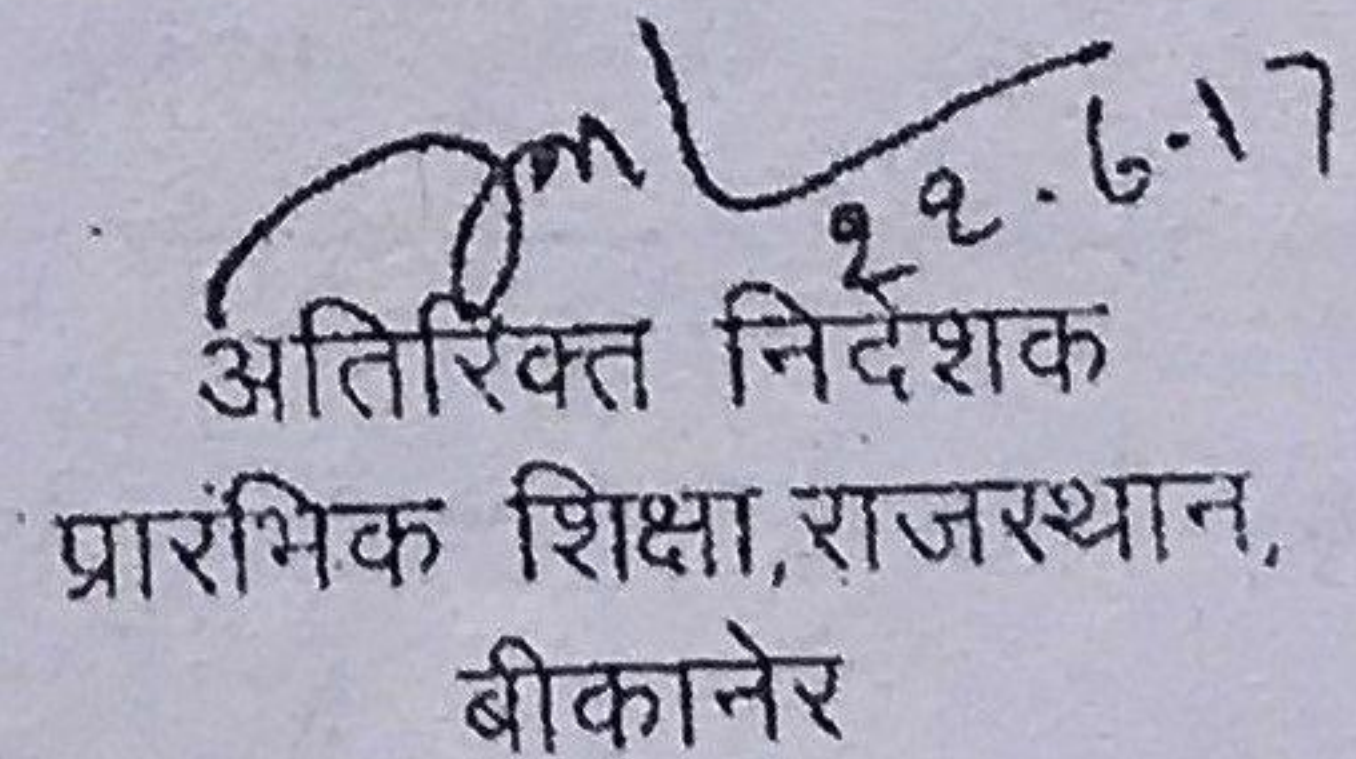 अतिरिक्त निदेशक
प्रारंभिक शिक्षा, राजस्थान,
बीकानेर